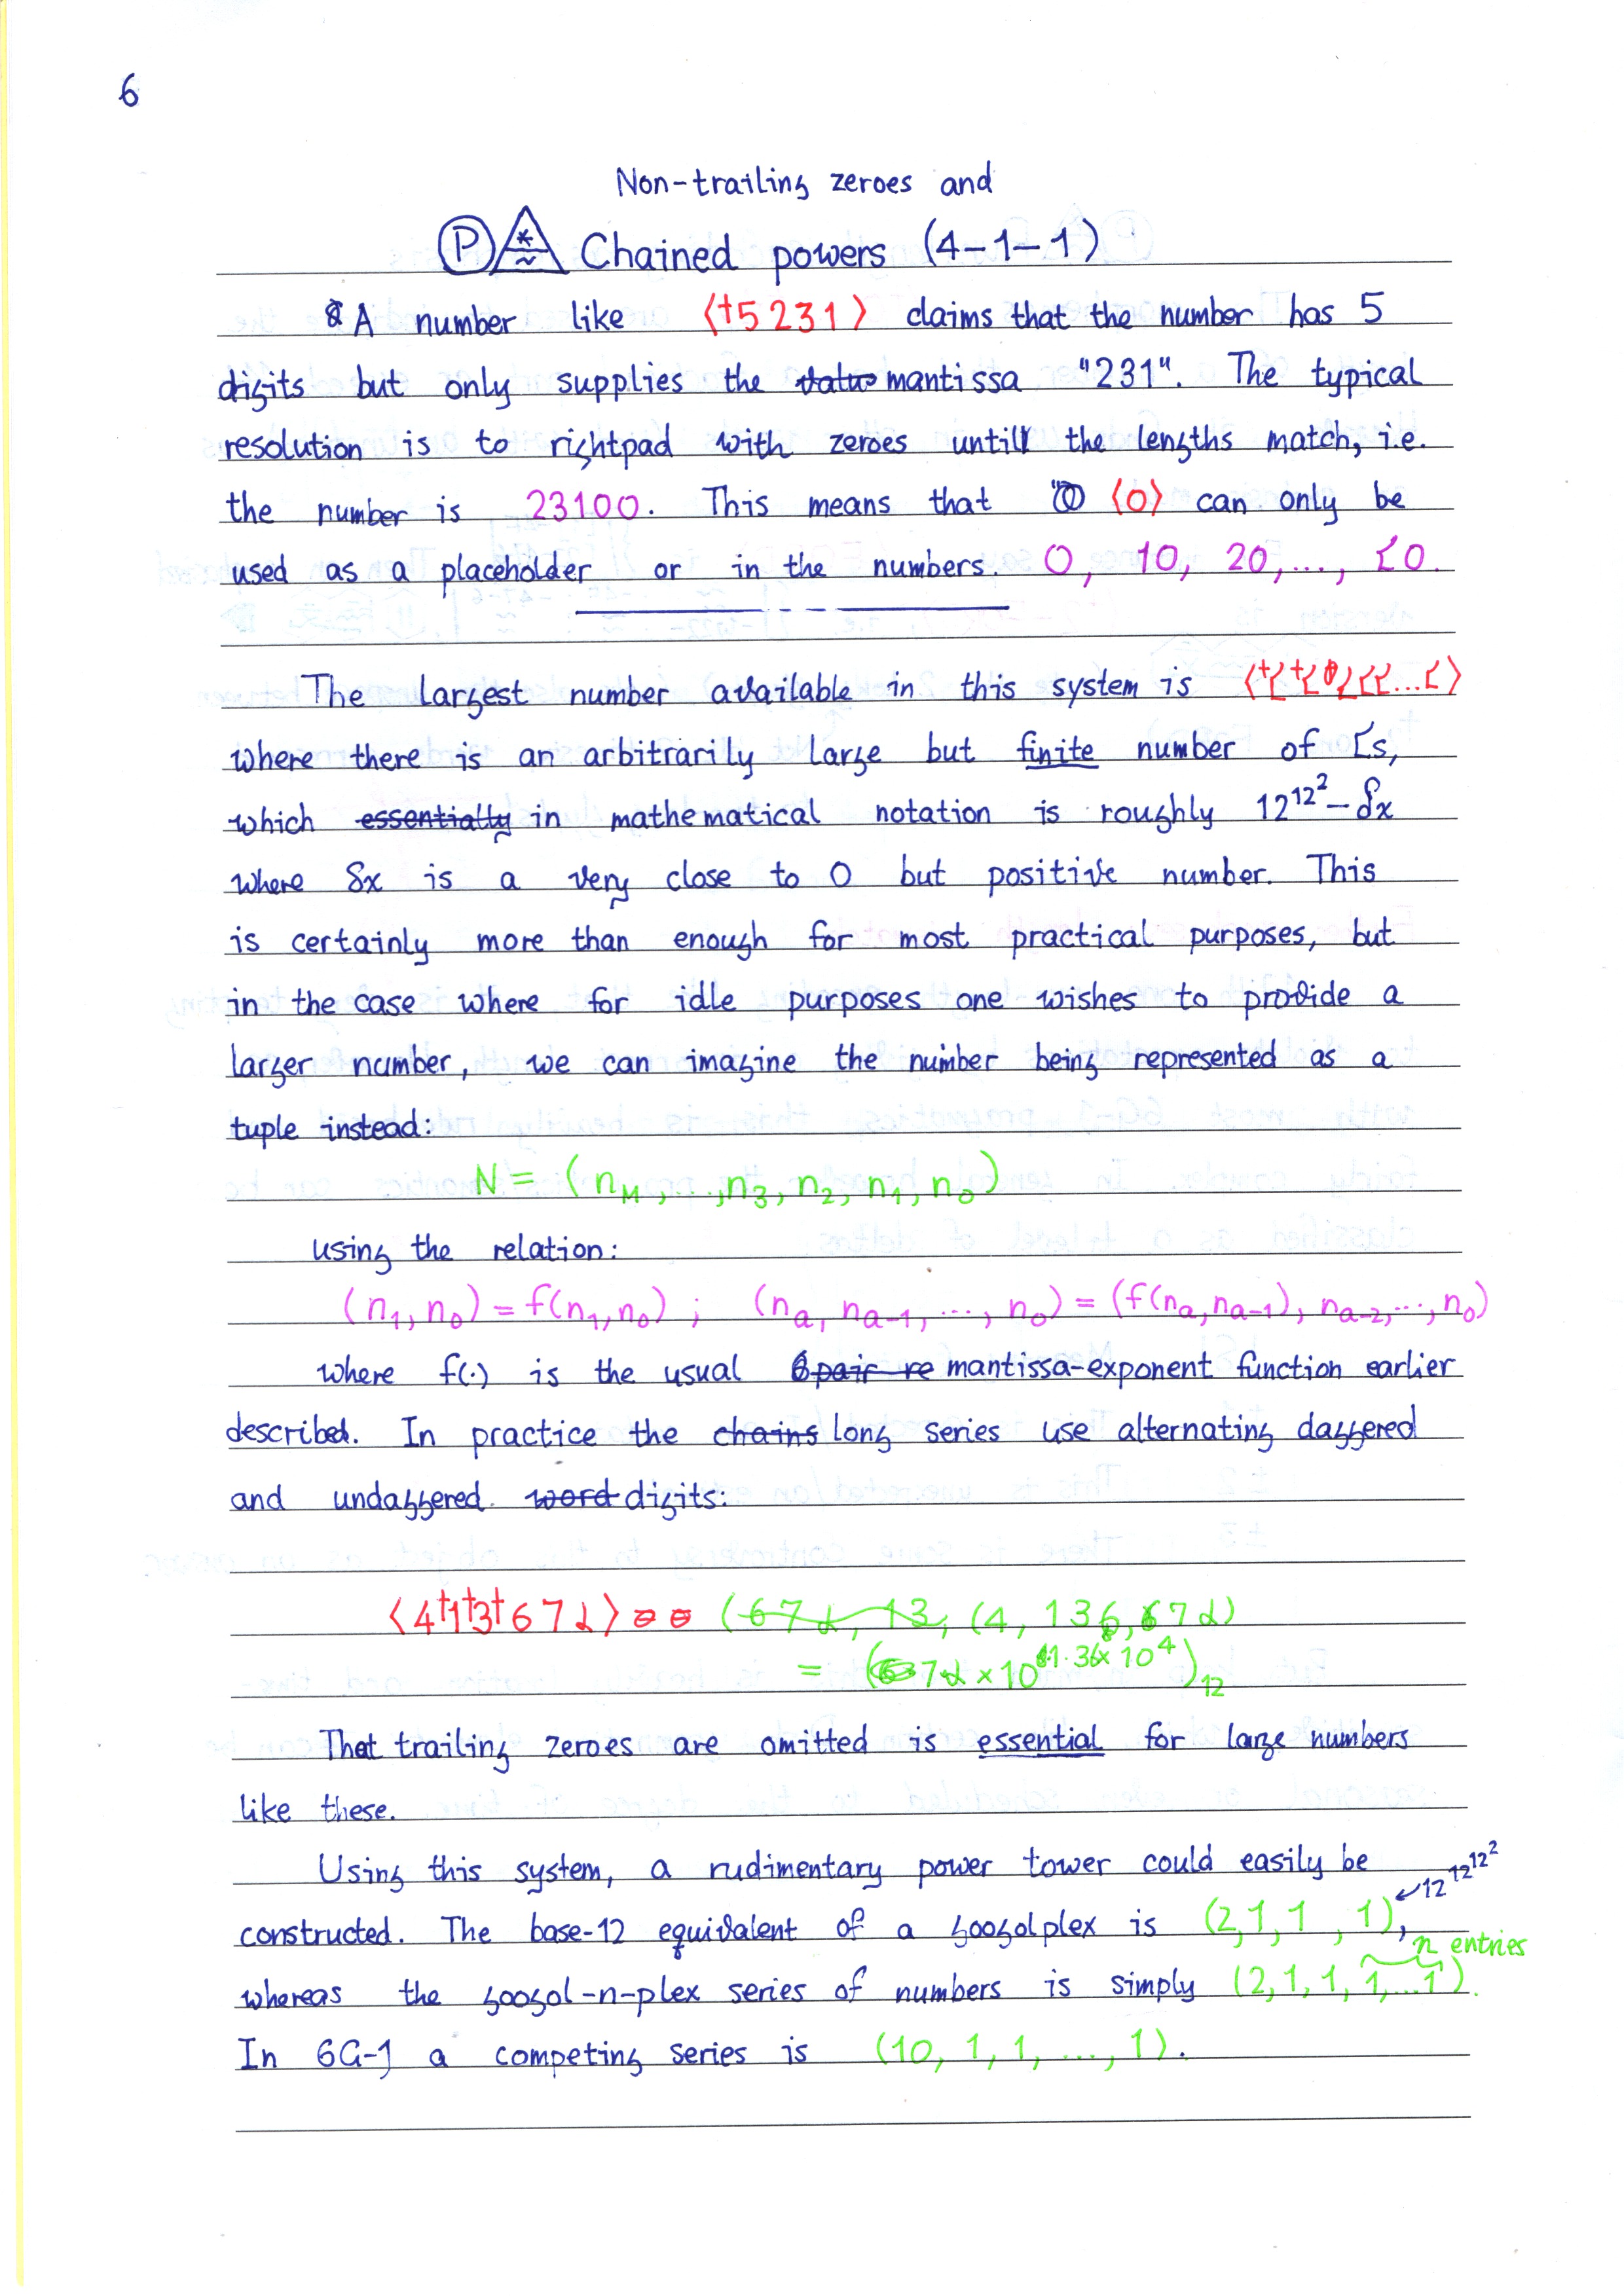 6
Non-trailing zeroes and
Ⓟ Chained powers (4-1-1)
A number like ⟨†5231⟩ claims that the number has 5
digits but only supplies the mantissa "231". The typical
resolution is to rightpad with zeroes untill the lengths match, i.e.
the number is 23100. This means that ⟨0⟩ can only be
used as a placeholder or in the numbers. 0, 10, 20, ..., Ɛ0.
The largest number available in this system is
where there is an arbitrarily large but finite number of Ɛs,
which essentially in mathematical notation is roughly 12^12^2 - δx
where δx is a very close to 0 but positive number. This
is certainly more than enough for most practical purposes, but
in the case where for idle purposes one wishes to provide a
larger number, we can imagine the number being represented as a
tuple instead:
N = (n_M, ..., n_3, n_2, n_1, n_0)
using the relation:
(n_1, n_0) = f(n_1, n_0) ; (n_a, n_a-1, ..., n_0) = (f(n_a, n_a-1), n_a-2, ..., n_0)
where f(·) is the usual mantissa-exponent function earlier
described. In practice the chains long series use alternating daggered
and undaggered word digits:
⟨4†1†3†67ᘔ⟩ (4, 136, 67ᘔ)
= (7ᘔ × 10^1.36×10^4)_12
That trailing zeroes are omitted is essential for large numbers
like these.
Using this system, a rudimentary power tower could easily be
constructed. The base-12 equivalent of a googolplex is (2,1,1,1), ↙12^12^12^2
whereas the googol-n-plex series of numbers is simply (2,1,1,1,...1). n entries
In 6G-1 a competing series is (10, 1, 1, ..., 1).